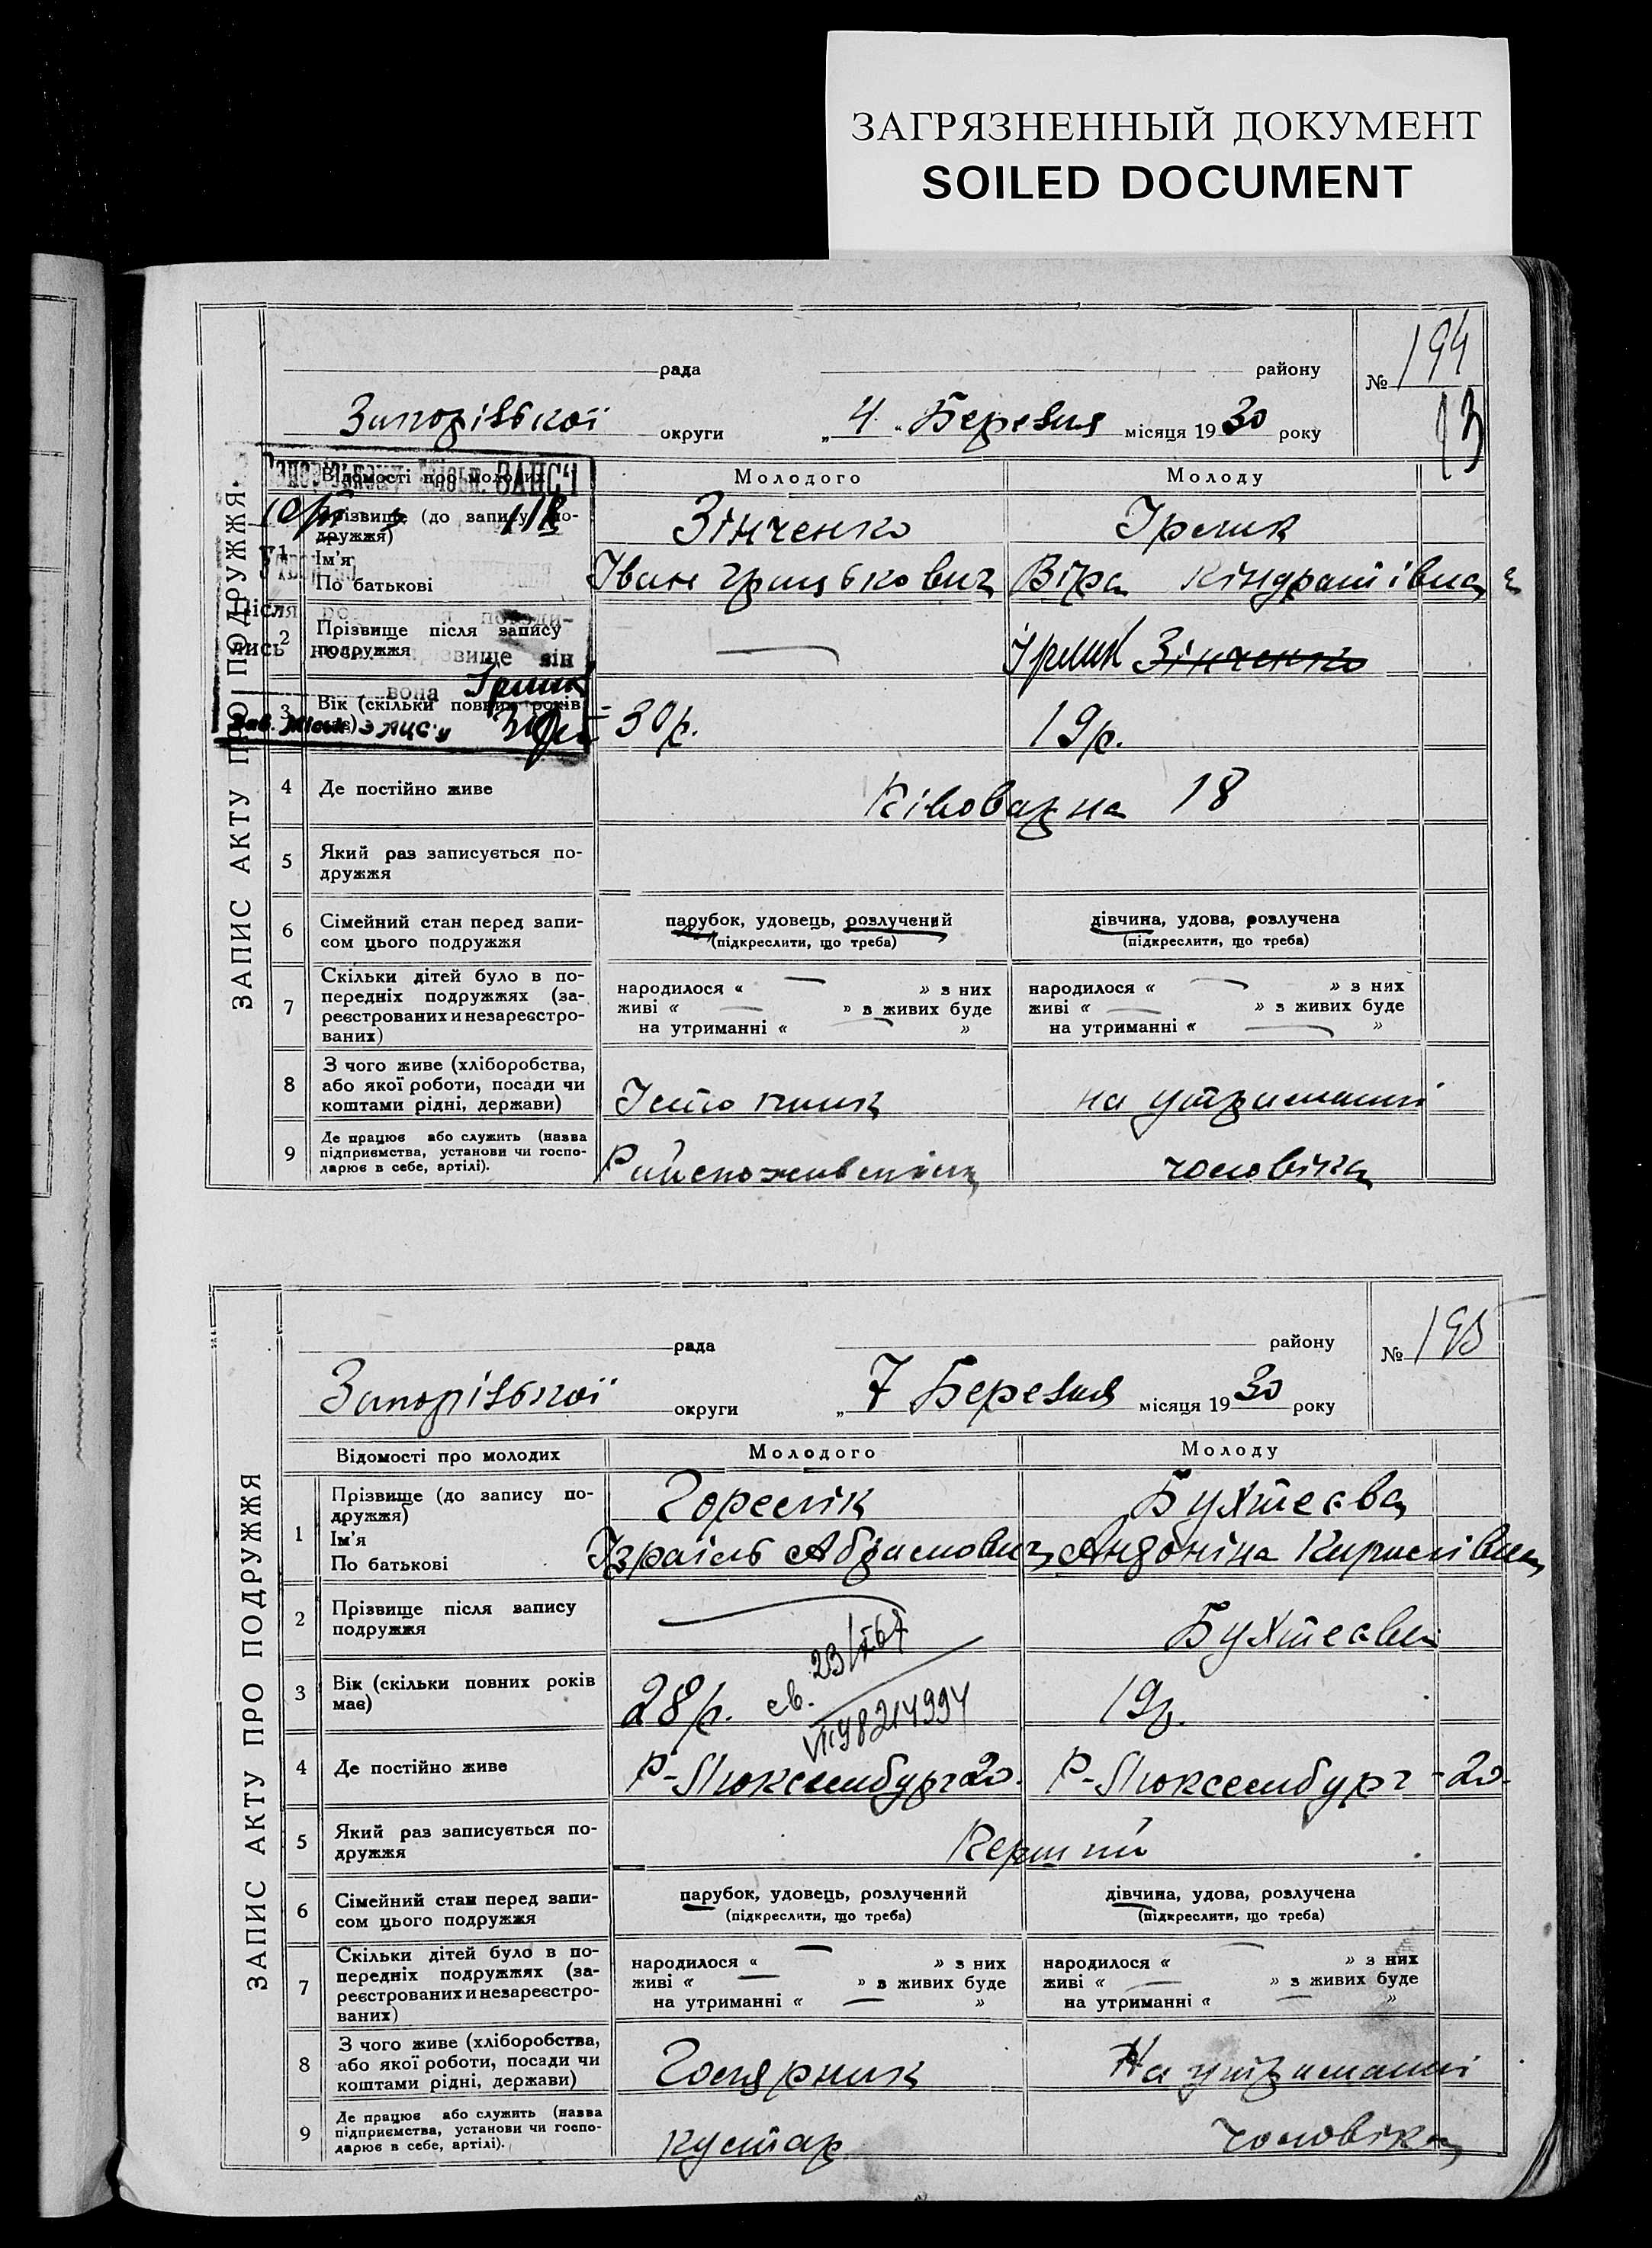 ЗАГРЯЗНЕННЫЙ ДОКУМЕНТ
SOILED DOCUMENT
ЗАПИС АКТУ ПРО ПОДРУЖЖЯ
рада району № 194
Запорізької округи „ 4 “ Березня місяця 1930 року
13
Відомості про молодих Молодого Молоду
Прізвище (до запису по-
дружжя) Зінченко Ірлик
Ім'я
По батькові Іван Грицькович Віра Кіндратівна
2 Прізвище після запису
подружжя — Ірлик Зінченко
вона Ірлик
3 Вік (скільки повних років
має) 30 р. 19 р.
Зав. Міськ ЗАЦС'у
4 Де постійно живе Ківоварна 18
5 Який раз записується по-
дружжя
6 Сімейний стан перед запи-
сом цього подружжя
парубок, удовець, розлучений
(підкреслити, що треба)
дівчина, удова, розлучена
(підкреслити, що треба)
7 Скільки дітей було в по-
передніх подружжях (за-
реєстрованих и незареєстро-
ваних)
народилося « — » з них
живі « — » з живих буде
на утриманні « — »
народилося « — » з них
живі « — » з живих буде
на утриманні « — »
8 З чого живе (хліборобства,
або якої роботи, посади чи
коштами рідні, держави)
Істопник на утриманні
9 Де працює або служить (назва
підприємства, установи чи госпо-
дарює в себе, артілі).
чоловіка
ЗАПИС АКТУ ПРО ПОДРУЖЖЯ
рада району № 195
Запорізької округи „ 7 Березня місяця 1930 року
Відомості про молодих Молодого Молоду
1 Прізвище (до запису по-
дружжя) Горелік Бухтеєва
Ім'я
По батькові Ізраїль Абрамович Андоніна Кирилівна
2 Прізвище після запису
подружжя — Бухтеєва
3 Вік (скільки повних років
має) 28 р. 19 р.
св. 23/X 67
4 Де постійно живе Р-Люксембург 20. Р-Люксембург - 20.
5 Який раз записується по-
дружжя Перший
6 Сімейний стан перед запи-
сом цього подружжя
парубок, удовець, розлучений
(підкреслити, що треба)
дівчина, удова, розлучена
(підкреслити, що треба)
7 Скільки дітей було в по-
передніх подружжях (за-
реєстрованих и незареєстро-
ваних)
народилося « — » з них
живі « — » з живих буде
на утриманні « — »
народилося « — » з них
живі « — » з живих буде
на утриманні « — »
8 З чого живе (хліборобства,
або якої роботи, посади чи
коштами рідні, держави)
Голярник На утриманні
9 Де працює або служить (назва
підприємства, установи чи госпо-
дарює в себе, артілі).
кустар чоловіка